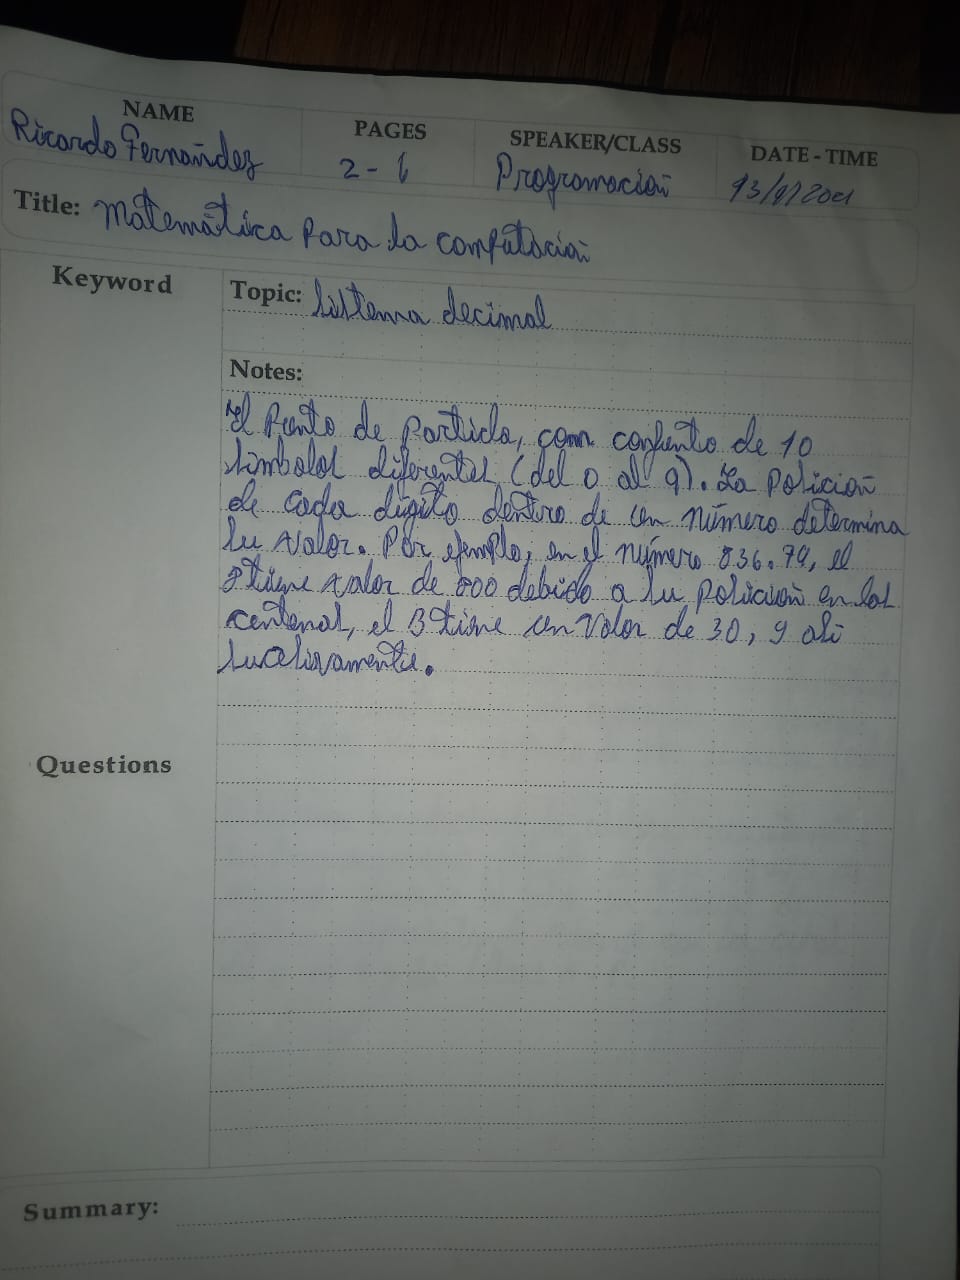 NAME
Ricardo Fernández
PAGES
2-6
SPEAKER/CLASS
Programación
DATE - TIME
Title: Matemática para la computación
Keyword
Topic: Sistema decimal
Notes:
El Punto de partida, con conjunto de 10
simbolos diferentes (del 0 al 9). La posición
de cada dígito dentro de un número determina
su valor. Por ejemplo, en el número 836.79, el
8 tiene valor de 800 debido a su posición en las
centenas, el 3 tiene un valor de 30, y así
sucesivamente.
Questions
Summary: